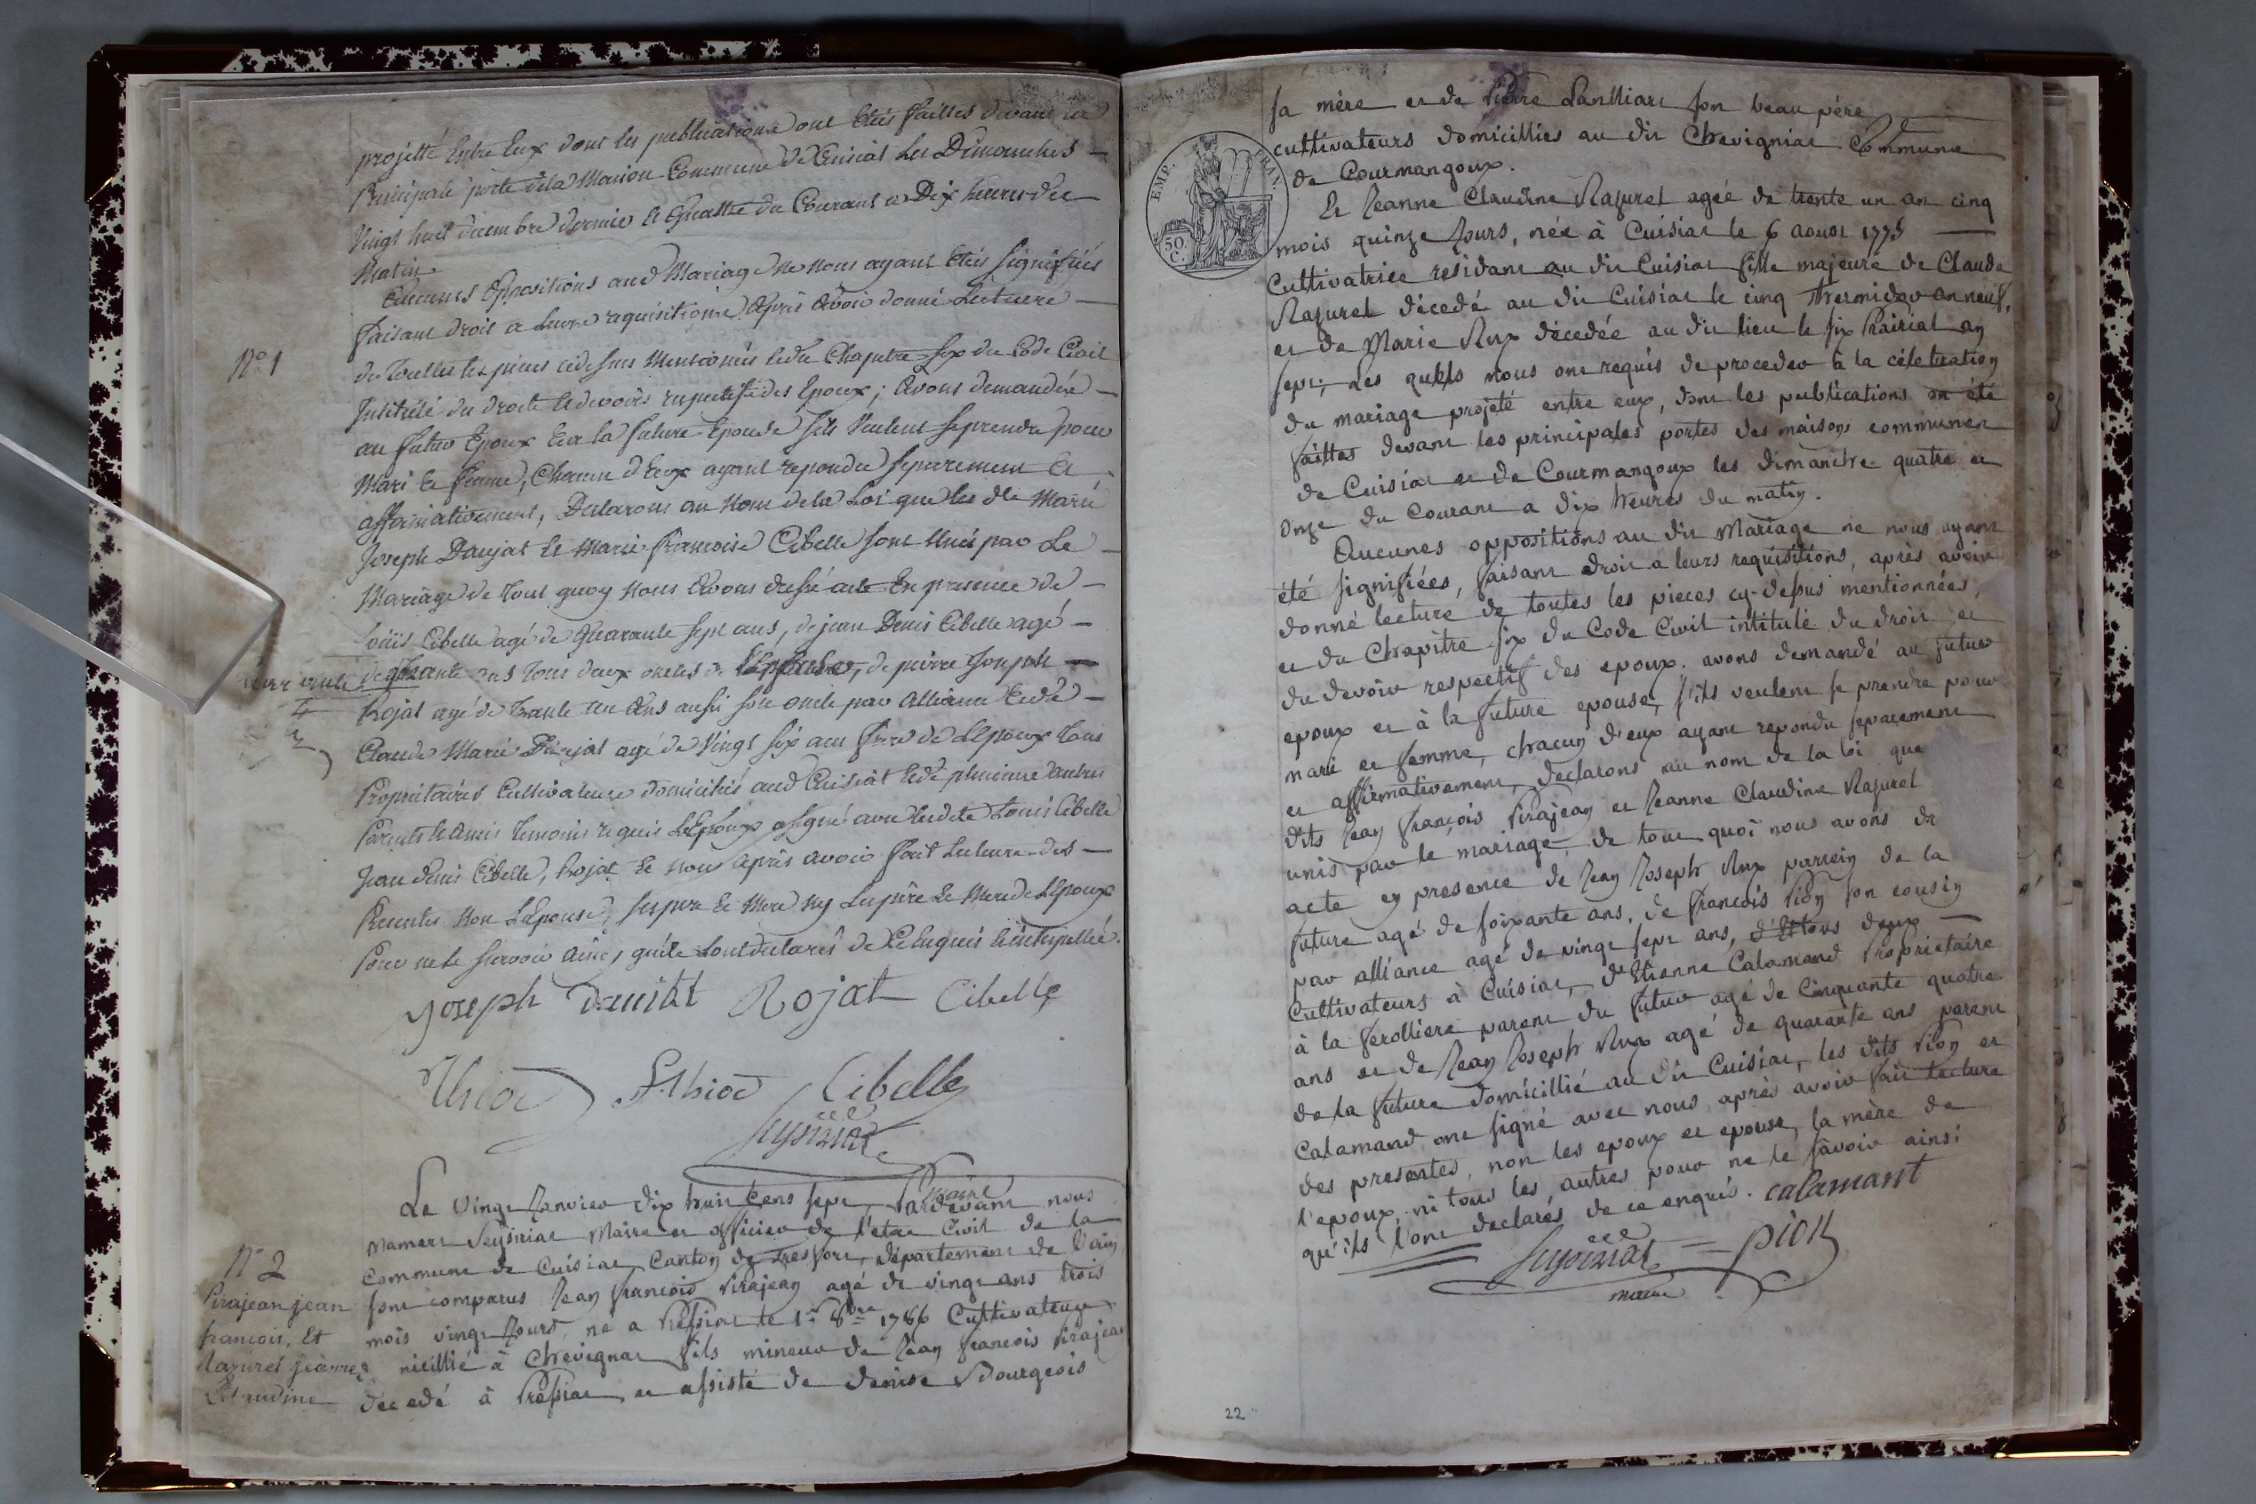 projetté Entre Eux dont les publications ont Etés faittes devant la
Principale porte dela Maison Commune de Cuisiat Les Dimanches
Vingt huit decembre dernier et Quattre du Courant a Dix heures du
Matin
Aucunes Oppositions aud Mariage ne nous ayant Etés Signifiées
faisant droit a Leurs requisitions Après Avoir donné Lecture
N° 1
de Touttes les pieces cidessus Mentionnées Et du Chapitre Six du Code Civil
Intitulé du droits Et devoirs respectifs des Epoux ; Avons demandée
au futur Epoux Et a la future Epouse s'ils Veulent se prendre pour
Mari Et femme, Chacun d'Eux ayant repondu separement Et
affirmativement, Declarons au Nom de la Loi que les dts Marie
Joseph Daujat Et Marie francoise Cibelle sont Unis par Le
Mariage de tout quoy Nous Avons dressé acte En presence de
Louis Cibelle agé de Quarante sept ans, de jean Denis Cibelle agé
de ans tous deux oncles de de pierre Joseph
Rojat agé de Trente un Ans aussi son oncle par Alliance Et de
Claude Marie Daujat agé de Vingt six ans frere de L'Epoux tous
Propriétaires Cultivateurs domiciliés aud Cuisiat Et de plusieurs autres
Parents Et Amis temoins requis L'Epoux a signé avec Louis Cibelle
Jean denis Cibelle, Rojat Et nous après avoir fait Lecture des
Presentes Non L'Epouse, ses pere Et Mere Ny Les père Et Mere de L'Epoux
Pour ne le sçavoir Ainsi qu'ils L'ont declarés de Ce Enquis Et interpellés.
Joseph Daujat Rojat Cibelle
Thiod S. thiod Cibelle
Seysiriat
maire
Le vingt Janvier dix huit cens sept, Pardevant nous
Mamert Seysiriat Maire et officier de l'état Civil de la
N° 2
Commune de Cuisiat Canton de Tresfort, département de l'ain
Pirajean jean
sont comparus Jean françois Pirajean agé de vingt ans trois
francois, Et
mois vingt Jours, né a Pressiat le 1er 8bre 1786 Cultivateur
Razuret jeanne
micillié à Chevignat fils mineur de Jean francois Pirajean
Claudine
decedé à Pressiat et assisté de denise Bourgeois
sa mère et de Pierre Lanthiare son beau père
cultivateurs domicilliés au dit Chevigniat Commune
de Courmangoux.
EMP. TRAV.
50
C.
Et Jeanne Claudine Razuret agée de trente un an cinq
mois quinze Jours, née à Cuisiat le 6 aoust 1775
Cultivatrice residant au dit Cuisiat fille majeure de Claude
Razuret décedé au dit Cuisiat le cinq thermidor an neuf,
et de Marie Rux décedée au dit lieu le six Prairial an
sept; Les quels nous ont requis de proceder à la célébration
du mariage projeté entre eux, dont les publications on été
faittes devant les principales portes des maisons communes
de Cuisiat et de Courmangoux les dimanche quatre et
onze du Courant a dix heures du matin.
Aucunes oppositions au dit Mariage ne nous ayant
été signifiées, faisant droit a leurs requisitions, après avoir
donné lecture de toutes les pieces cy-dessus mentionnées,
et du Chapitre six du Code Civil intitulé du droit et
du devoir respectif des epoux. avons demandé au futur
epoux et à la future epouse, s'ils veulent se prendre pour
mari et femme, chacun d'eux ayant repondu separement
et affirmativement, declarons au nom de la loi que
dits Jean françois Pirajean et Jeanne Claudine Razuret
unis par le mariage, de tout quoi nous avons dr
acte en presence de Jean Joseph Rux parrein de la
future agé de soixante ans, de francois Pion son cousin
par alliance agé de vingt sept ans, d'Et tous deux
Cultivateurs à Cuisiat, d'Etienne Calamand Propriétaire
à la ferolliere parent du futur agé de Cinquante quatre
ans et de Jean Joseph Rux agé de quarante ans parent
de la future domicillié au dit Cuisiat, les dits Pion et
Calamand ont signé avec nous après avoir fait lecture
des presentes, non les epoux et epouse, la mère de
l'epoux, ni tous les autres pour ne le savoir ainsi
qu'ils l'ont declarés de ce enquis. calamant
Seysiriat pion
maire
22